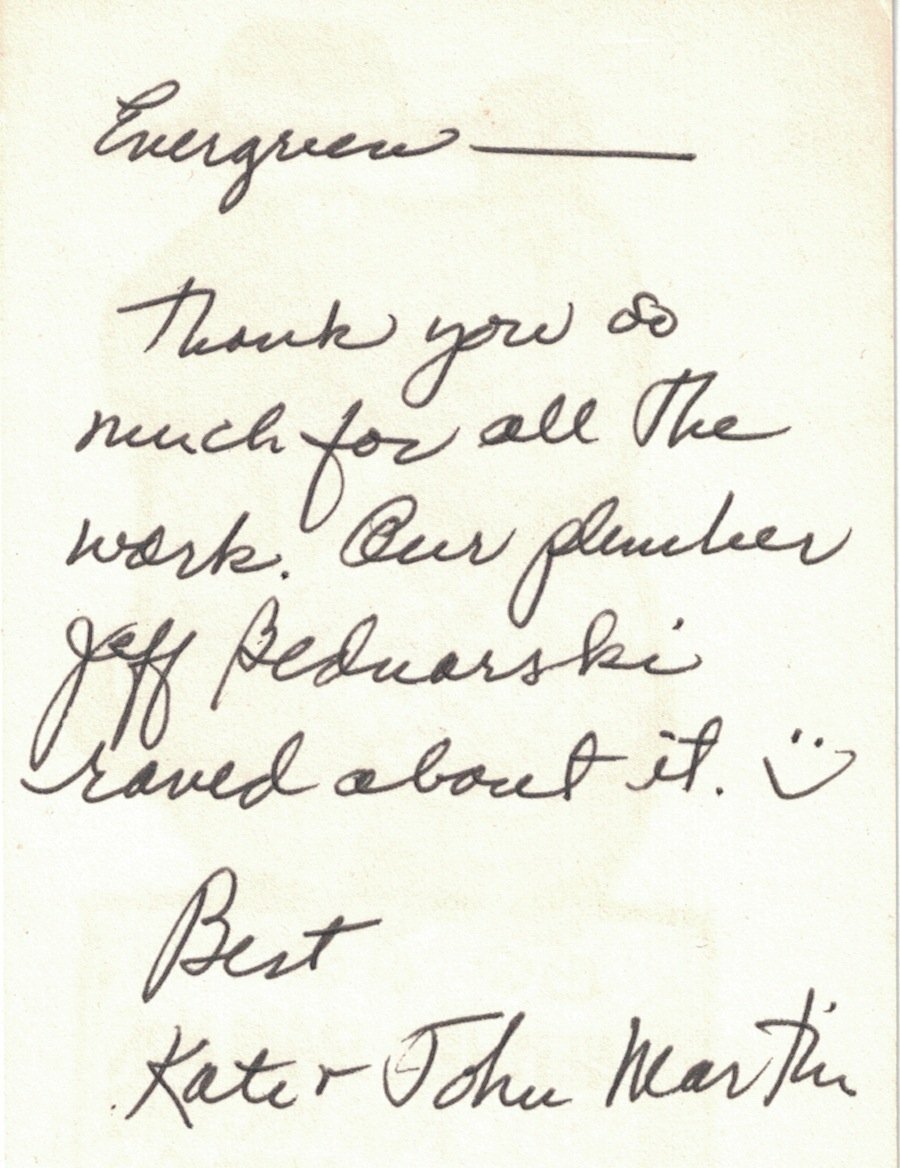 Evergreen —
Thank you so
much for all the
work. Our plumber
Jeff Bednarski
raved about it. :)
Best
Kate + John Martin